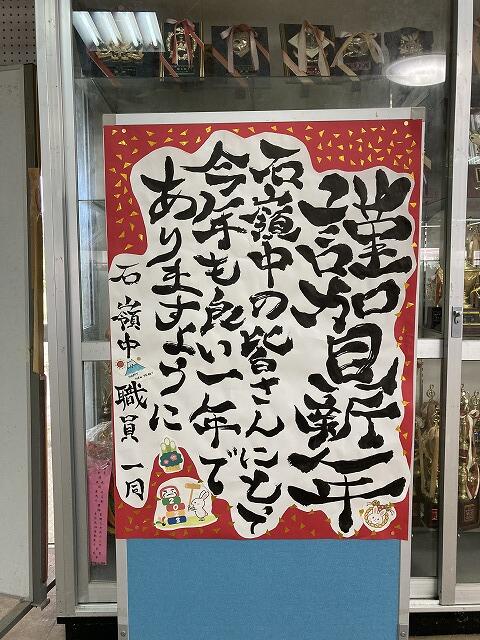 謹賀新年
石嶺中の皆さんにとって
今年も良い一年で
ありますように
石嶺中 職員 一同